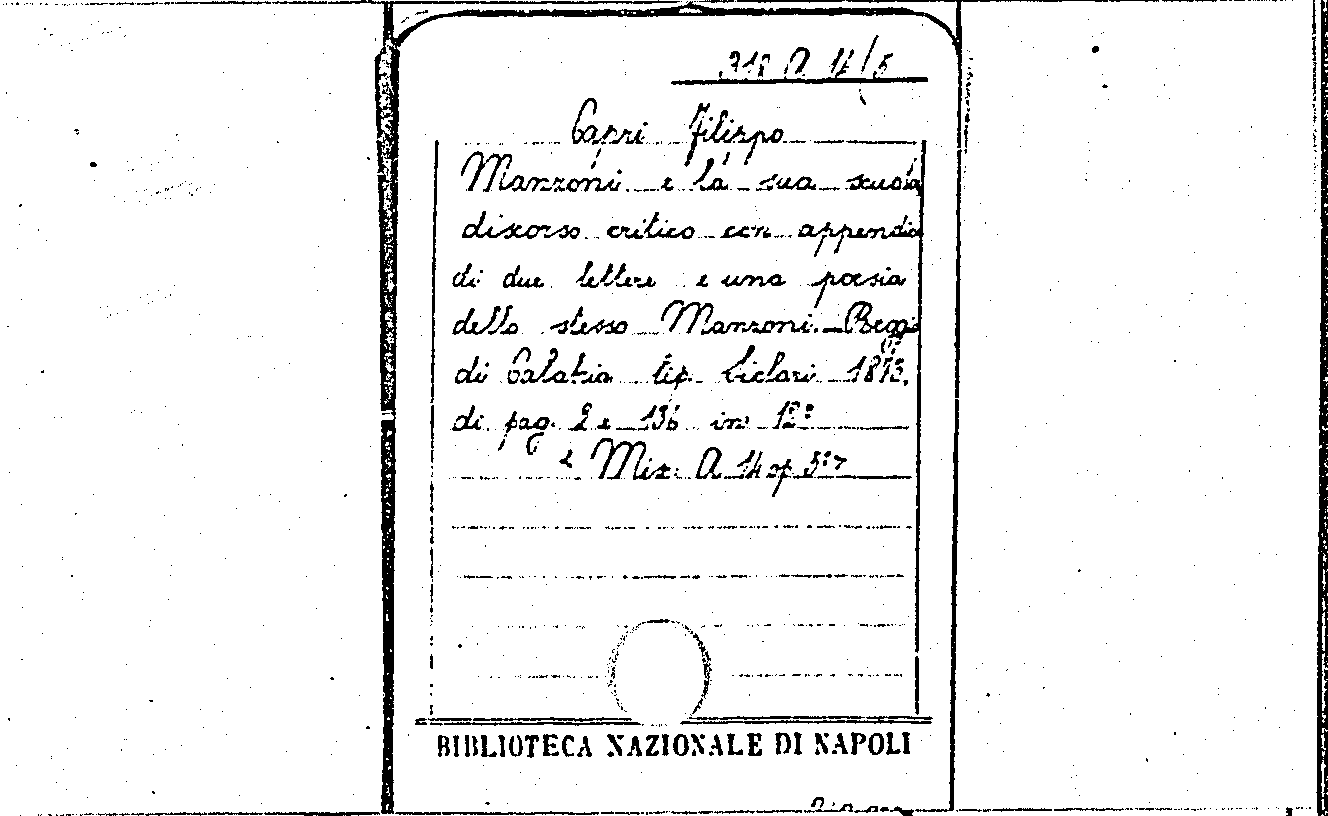 318 A 14/5
Capri Filippo
Manzoni e la sua scuola
discorso critico con appendic
di due lettere e una poesia
dello stesso Manzoni. Reggi
di Calabria tip. Ciclari 1873.
di pag. 2 e 136 in 12º
Mis. A 14 op 5
BIBLIOTECA NAZIONALE DI NAPOLI